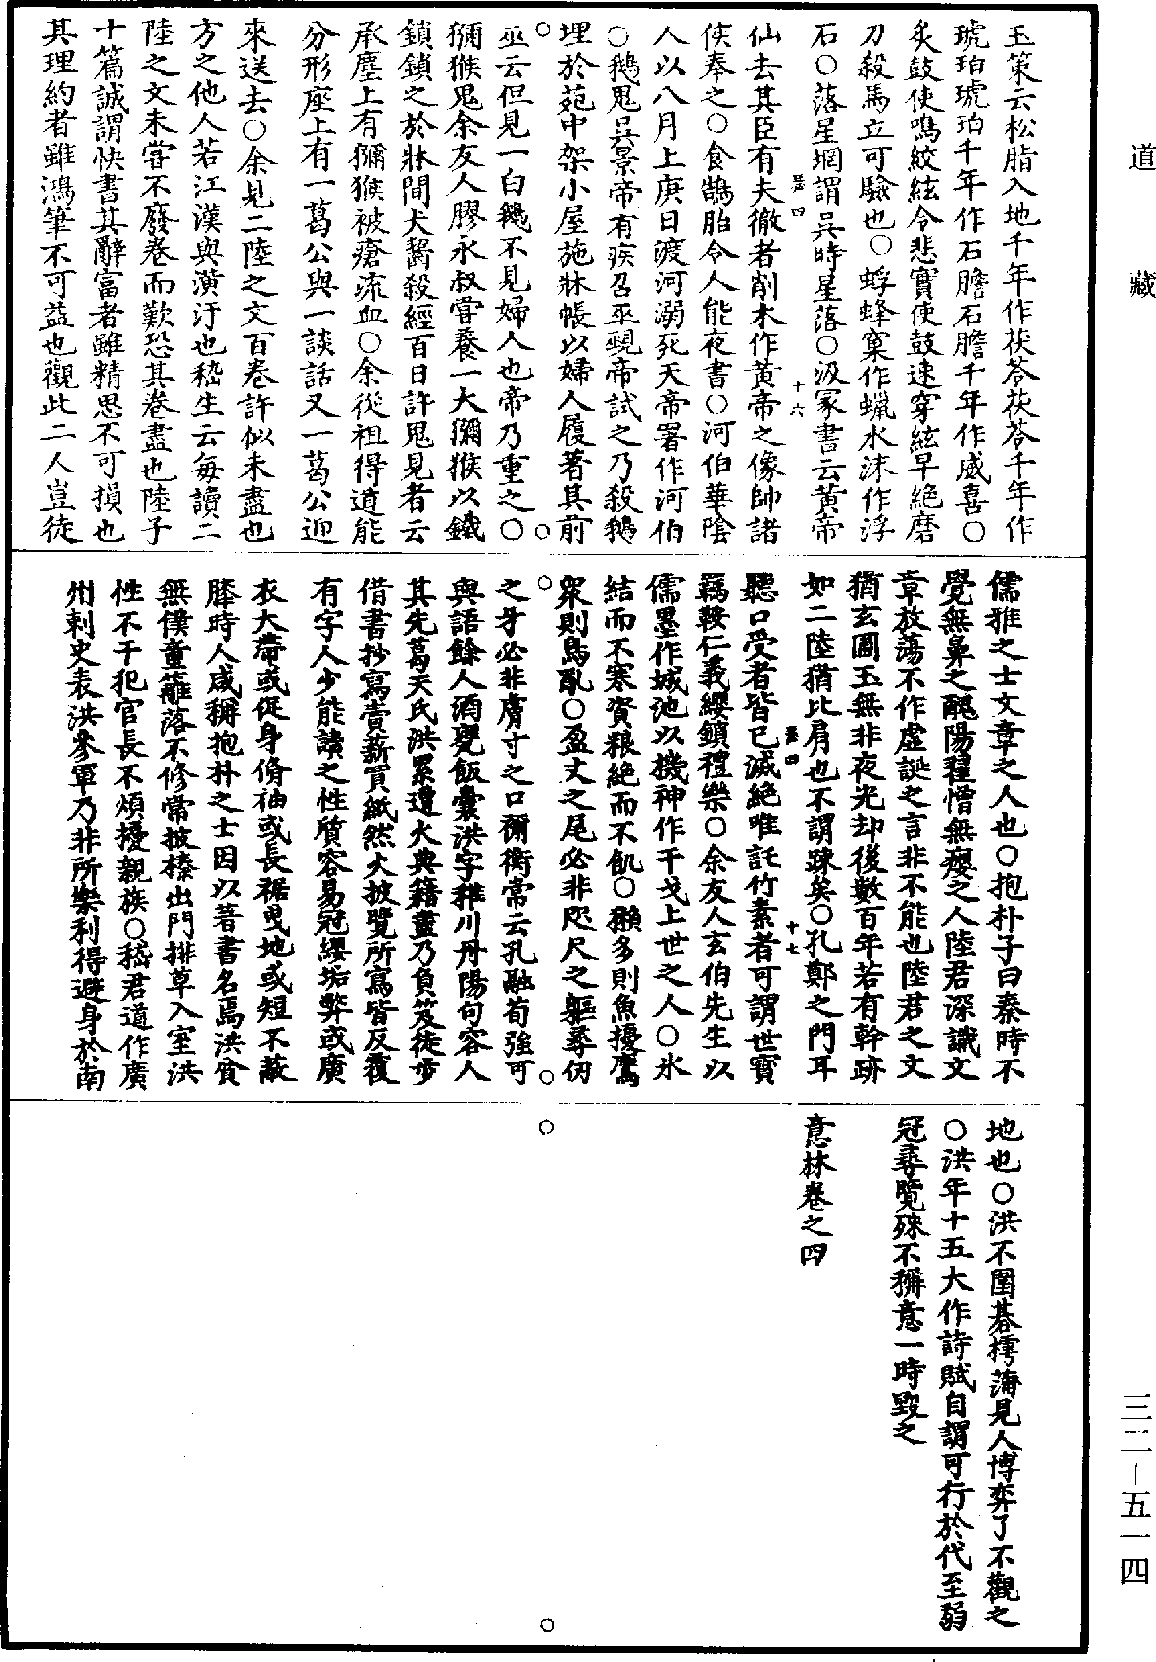 道藏
玉策云松脂入地千年作茯苓茯苓千年作
琥珀琥珀千年作石膽石膽千年作威喜○
炙鼓使鳴絞絃令悲實使鼓速穿絃早絕磨
刀殺馬立可驗也○蜉蜂窠作蠟水沫作浮
石○落星堈謂吳時星落○汲冢書云黃帝
十六
仙去其臣有夫徹者削木作黃帝之像帥諸
侯奉之○食鵲胎令人能夜書○河伯華陰
人以八月上庚日渡河溺死天帝署作河伯
○鵝鬼吳景帝有疾召巫覡帝試之乃殺鵝
埋於苑中架小屋施牀帳以婦人履著其前
巫云但見一白鵝不見婦人也帝乃重之○
獼猴鬼余友人膠永叔嘗養一大獼猴以鐵
鎖鎖之於牀間犬齧殺經百日許鬼見者云
承塵上有獼猴被瘡流血○余從祖得道能
分形座上有一葛公與一談話又一葛公迎
來送去○余見二陸之文百卷許似未盡也
方之他人若江漢與潢汙也嵇生云每讀二
陸之文未嘗不廢卷而歎恐其卷盡也陸子
十篇誠謂快書其辭富者雖精思不可損也
其理約者雖鴻筆不可益也觀此二人豈徒
儒雅之士文章之人也○抱朴子曰秦時不
覺無鼻之醜陽翟憎無癭之人陸君深識文
章放蕩不作虛誕之言非不能也陸君之文
猶玄圃玉無非夜光却後數百年若有幹跡
如二陸猶比肩也不謂踈矣○孔鄭之門耳
十七
聽口受者皆已滅絕唯託竹素者可謂世寶
羈鞍仁義纓鎖禮樂○余友人玄伯先生以
儒墨作城池以機神作干戈上世之人○氷
結而不寒資粮絕而不飢○獺多則魚擾鷹
眾則鳥亂○盈丈之尾必非咫尺之軀尋仞
之牙必非膚寸之口禰衡常云孔融荀強可
與語餘人酒甕飯囊洪字稚川丹陽句容人
其先葛天氏洪累遭火典籍盡乃負笈徒步
借書抄寫賣薪買紙然火披覽所寫皆反覆
有字人少能讀之性質容易冠纓垢弊或廣
衣大帶或促身脩袖或長裾曳地或短不蔽
膝時人咸稱抱朴之士因以著書名焉洪貧
無僕童籬落不修常披榛出門排草入室洪
性不干犯官長不煩擾親族○嵇君道作廣
州刺史表洪參軍乃非所樂利得避身於南
地也○洪不圍碁樗蒲見人博弈了不觀之
○洪年十五大作詩賦自謂可行於代至弱
冠尋覽殊不稱意一時毀之
意林卷之四
三二－五一四